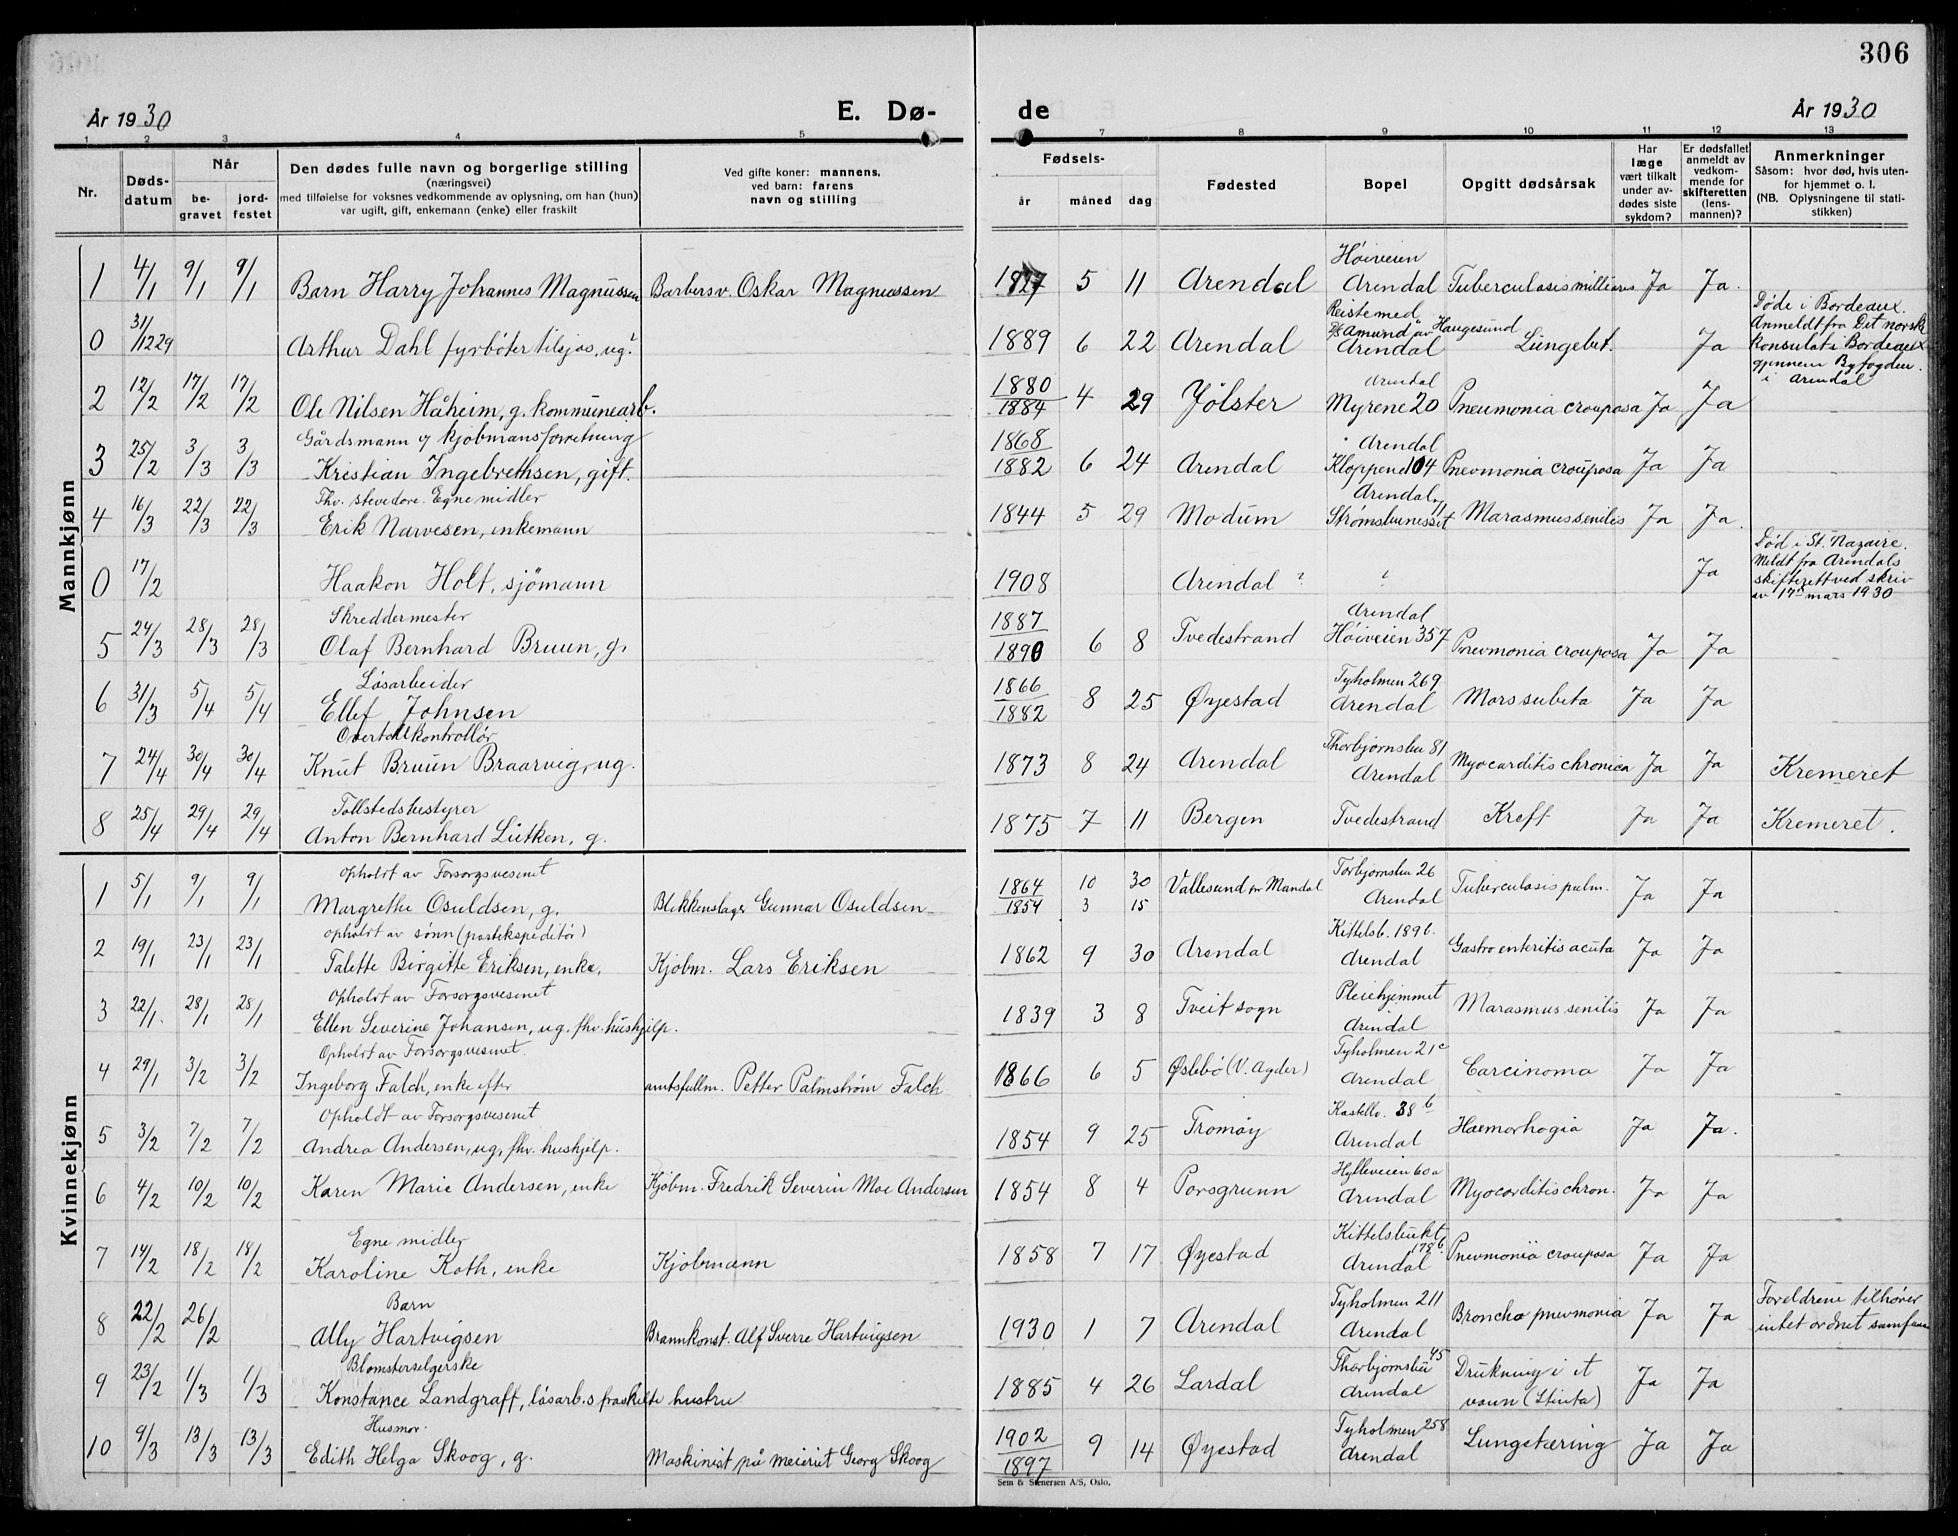 306
År 1930
E. Dø-
de
År 1930
1 2 3 4 5 7 8 9 10 11 12 13
Nr.
Døds-
datum
Når
be-
gravet
jord-
festet
Den dødes fulle navn og borgerlige stilling
(næringsvei)
med tilføielse for voksnes vedkommende av oplysning, om han (hun)
var ugift, gift, enkemann (enke) eller fraskilt
Ved gifte koner: mannens,
ved barn: farens
navn og stilling
Fødsels-
år måned dag
Fødested
Bopel
Opgitt dødsårsak
Har
læge
vært tilkalt
under av-
dødes siste
sykdom?
Er dødsfallet
anmeldt av
vedkom-
mende for
skifteretten
(lens-
mannen)?
Anmerkninger
Såsom: hvor død, hvis uten-
for hjemmet o. l.
(NB. Oplysningene til stati-
stikken)
Mannkjønn
Høiveien
1 4/1 9/1 9/1 Barn Harry Johannes Magnussen Barbersv. Oskar Magnussen 1927 5 11 Arendal Arendal Tuberculosis milliaris Ja Ja.
Reiste med
Døde i Bordeaux.
0 31/12 29 Arthur Dahl fyrbøter tilsjøs, ug. 1889 6 22 Arendal D/S "Amund" av Haugesund Arendal Lungebet. Ja
Anmeldt fra Det norsk
konsulat i Bordeaux
gjennem Byfogden
i Arendal
1880 Arendal
2 12/2 17/2 17/2 Ole Nilsen Håheim, g. kommunearb. 1884 4 29 Jølster Myrene 20 Pneumonia crouposa Ja Ja
Gårdsmann og kjøbmansforretning 1868 Arendal
3 25/2 3/3 3/3 Kristian Ingebrethsen, gift. 1882 6 24 Arendal Kloppend 104 Pnevmonia crouposa Ja Ja
Fhv. stevedore. Egne midler Arendal
4 16/3 22/3 22/3 Erik Narvesen, enkemann 1844 5 29 Modum Strømsbunesset Marasmus senilis Ja Ja.
0 17/2 Haakon Holt, sjømann 1908 Arendal ? Ja
Død i St. Nazaire.
Meldt fra Arendals
skifterett ved skriv
av 17 mars 1930
Skreddermester 1887 Arendal
5 24/3 28/3 28/3 Olaf Bernhard Bruun, g. 1890 6 8 Tvedestrand Høiveien 357 Pnevmonia crouposa Ja Ja
Løsarbeider 1866 Tyholmen 269
6 31/3 5/4 5/4 Ellef Johnsen 1882 8 25 Øyestad Arendal Mors subita Ja Ja
Overtollkontrollør Thorbjørnsbu 81
7 24/4 30/4 30/4 Knut Bruun Braarvig, ug. 1873 8 24 Arendal Arendal Myocarditis chronica Ja Ja Kremeret
Tollstedsbestyrer
8 25/4 29/4 29/4 Anton Bernhard Lütken, g. 1875 7 11 Bergen Tvedestrand Kreft Ja Ja Kremeret.
Kvinnekjønn
Opholdt av Forsorgsvesenet 1864 10 30 Torbjørnsbu 26
1 5/1 9/1 9/1 Margrethe Osuldsen, g. Blikkenslager Gunnar Osuldsen 1854 3 15 Vallesund pr Mandal Arendal Tuberculosis pulm. Ja Ja
Opholdt av sønn (postekspeditør) Kittelsb. 189 b.
2 19/1 23/1 23/1 Talette Birgitte Eriksen, enke. Kjøbm. Lars Eriksen 1862 9 30 Arendal Arendal Gastro enteritis acuta Ja Ja
Opholdt av Forsorgsvesenet Pleiehjemmet
3 22/1. 28/1 28/1 Ellen Severine Johansen, ug. fhv. hushjelp. 1839 3 8 Tveit sogn Arendal Marasmus senilis Ja Ja
Opholdt av Forsorgsvesenet. Tyholmen 21c
4 29/1 3/2 3/2 Ingeborg Falch, enke efter amtsfullm. Petter Palmstrøm Falch 1866 6 5 Øslebø (V. Agder) Arendal Carcinoma Ja Ja
Opholdt av Forsorgsvesenet Kastellv. 38 b
5 3/2 7/2 7/2 Andrea Andersen, ug, fhv. hushjelp. 1854 9 25 Tromøy Arendal Haemorhagia Ja Ja.
Hylleveien 60a
6 4/2 10/2 10/2 Karen Marie Andersen, enke Kjøbm. Fredrik Severin Moe Andersen 1854 8 4 Porsgrunn Arendal Myocorditis chron. Ja Ja
Egne midler Kittelsbukt 178 b
7 14/2 18/2 18/2 Karoline Koth, enke Kjøbmann 1858 7 17 Øyestad Arendal Pnevmonia crouposa Ja Ja
Barn Tyholmen 211
8 22/2 26/2 Ally Hartvigsen Brannkonst. Alf Sverre Hartvigsen 1930 1 7 Arendal Arendal Broncho pnevmonia Ja Ja Foreldrene tilhører
intet ordnet samfunn
Blomsterselgerske Thorbjørnsbu 45
9 23/2 1/3 1/3 Konstance Landgraff, løsarb.s fraskilte hustru 1885 4 26 Lardal Arendal Drukning i et vann (Stinta) Ja Ja
Husmor. 1902 Tyholmen 258
10 9/3 13/3 13/3 Edith Helga Skoog, g. Maskinist på meieriet Georg Skoog 1897 9 14 Øyestad Arendal Lungetæring Ja Ja
Sem & Stenersen A/S, Oslo.